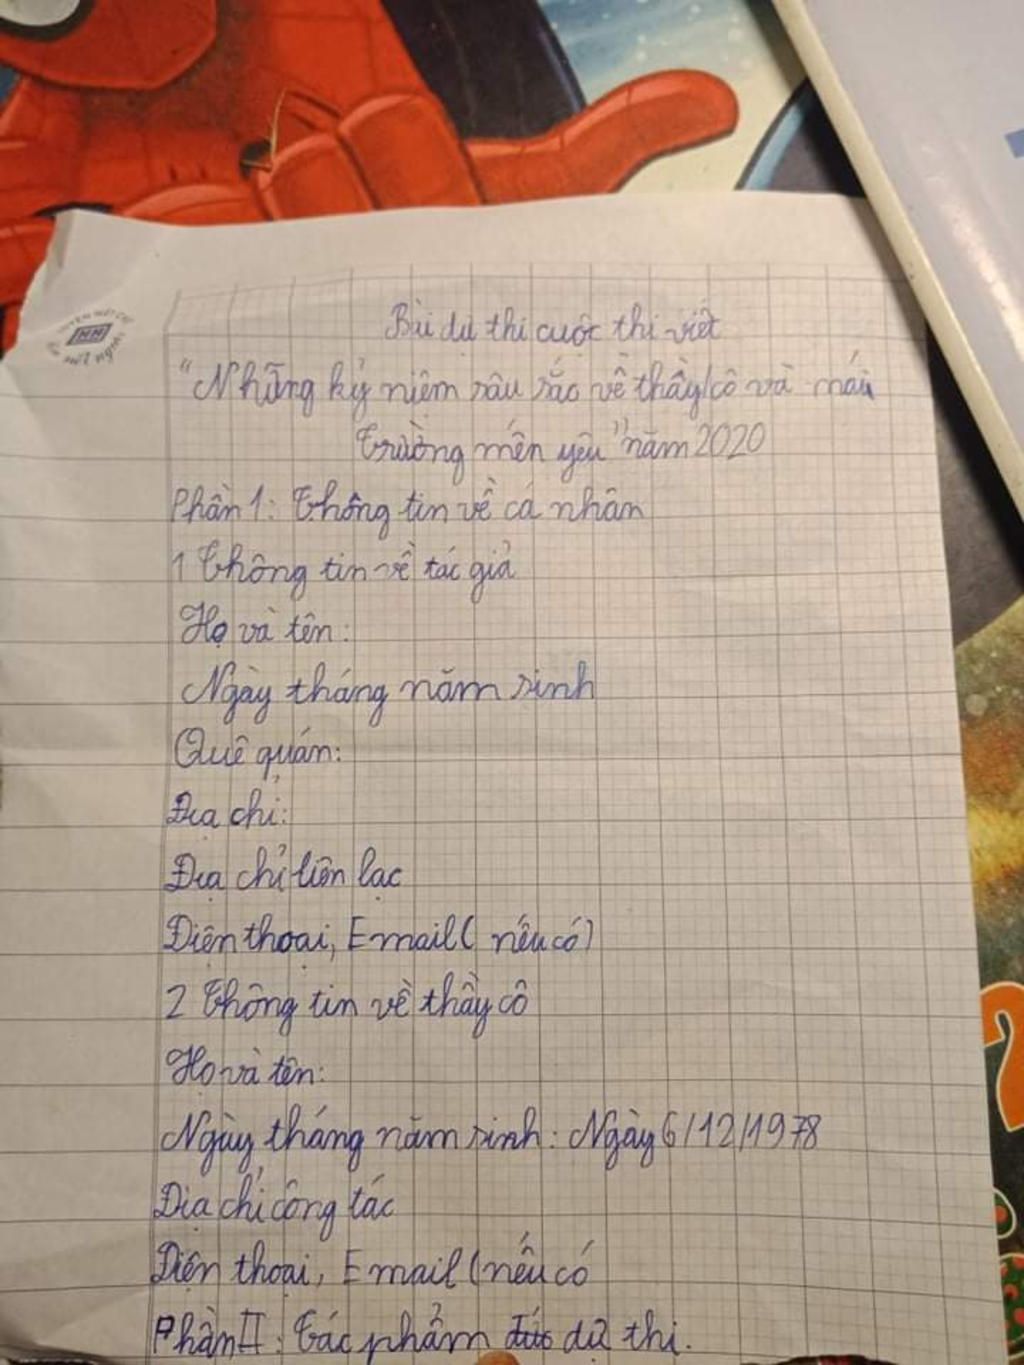 Bài dự thi cuộc thi viết
"Những kỷ niệm sâu sắc về thầy cô và mái
trường mến yêu" năm 2020
Phần 1: Thông tin về cá nhân
1 Thông tin về tác giả
Họ và tên:
Ngày tháng năm sinh
Quê quán:
Địa chỉ:
Địa chỉ liên lạc
Điện thoại, Email ( nếu có)
2 Thông tin về thầy cô
Họ và tên:
Ngày tháng năm sinh: Ngày 6/12/1978
Địa chỉ công tác
Điện thoại, Email (nếu có
Phần II: Tác phẩm dự thi.
HH
2